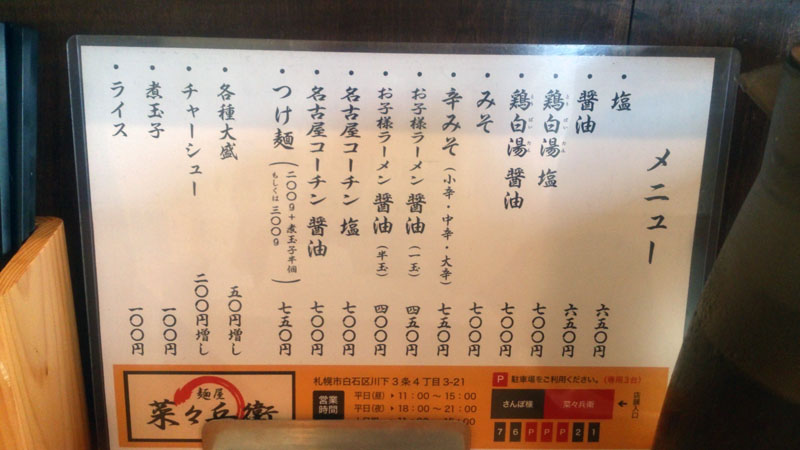 メニュー
・塩 六五〇円
・醤油 六五〇円
・鶏白湯 塩 七〇〇円
・鶏白湯 醤油 七〇〇円
・みそ 七〇〇円
・辛みそ(小辛・中辛・大辛) 七五〇円
・お子様ラーメン 醤油(一玉) 四五〇円
・お子様ラーメン 醤油(半玉) 四〇〇円
・名古屋コーチン 塩 七〇〇円
・名古屋コーチン 醤油 七〇〇円
・つけ麺(二〇〇g+煮玉子半個 もしくは三〇〇g) 七五〇円
・各種大盛 五〇円増し
・チャーシュー 二〇〇円増し
・煮玉子 一〇〇円
・ライス 一〇〇円
麺屋
菜々兵衛
札幌市白石区川下3条4丁目3-21
営業時間
平日(昼)▶11:00〜15:00
平日(夜)▶18:00〜21:00
P 駐車場をご利用ください。(専用3台)
さんぱ様 菜々兵衛
←店舗入口
7 6 P P P 2 1